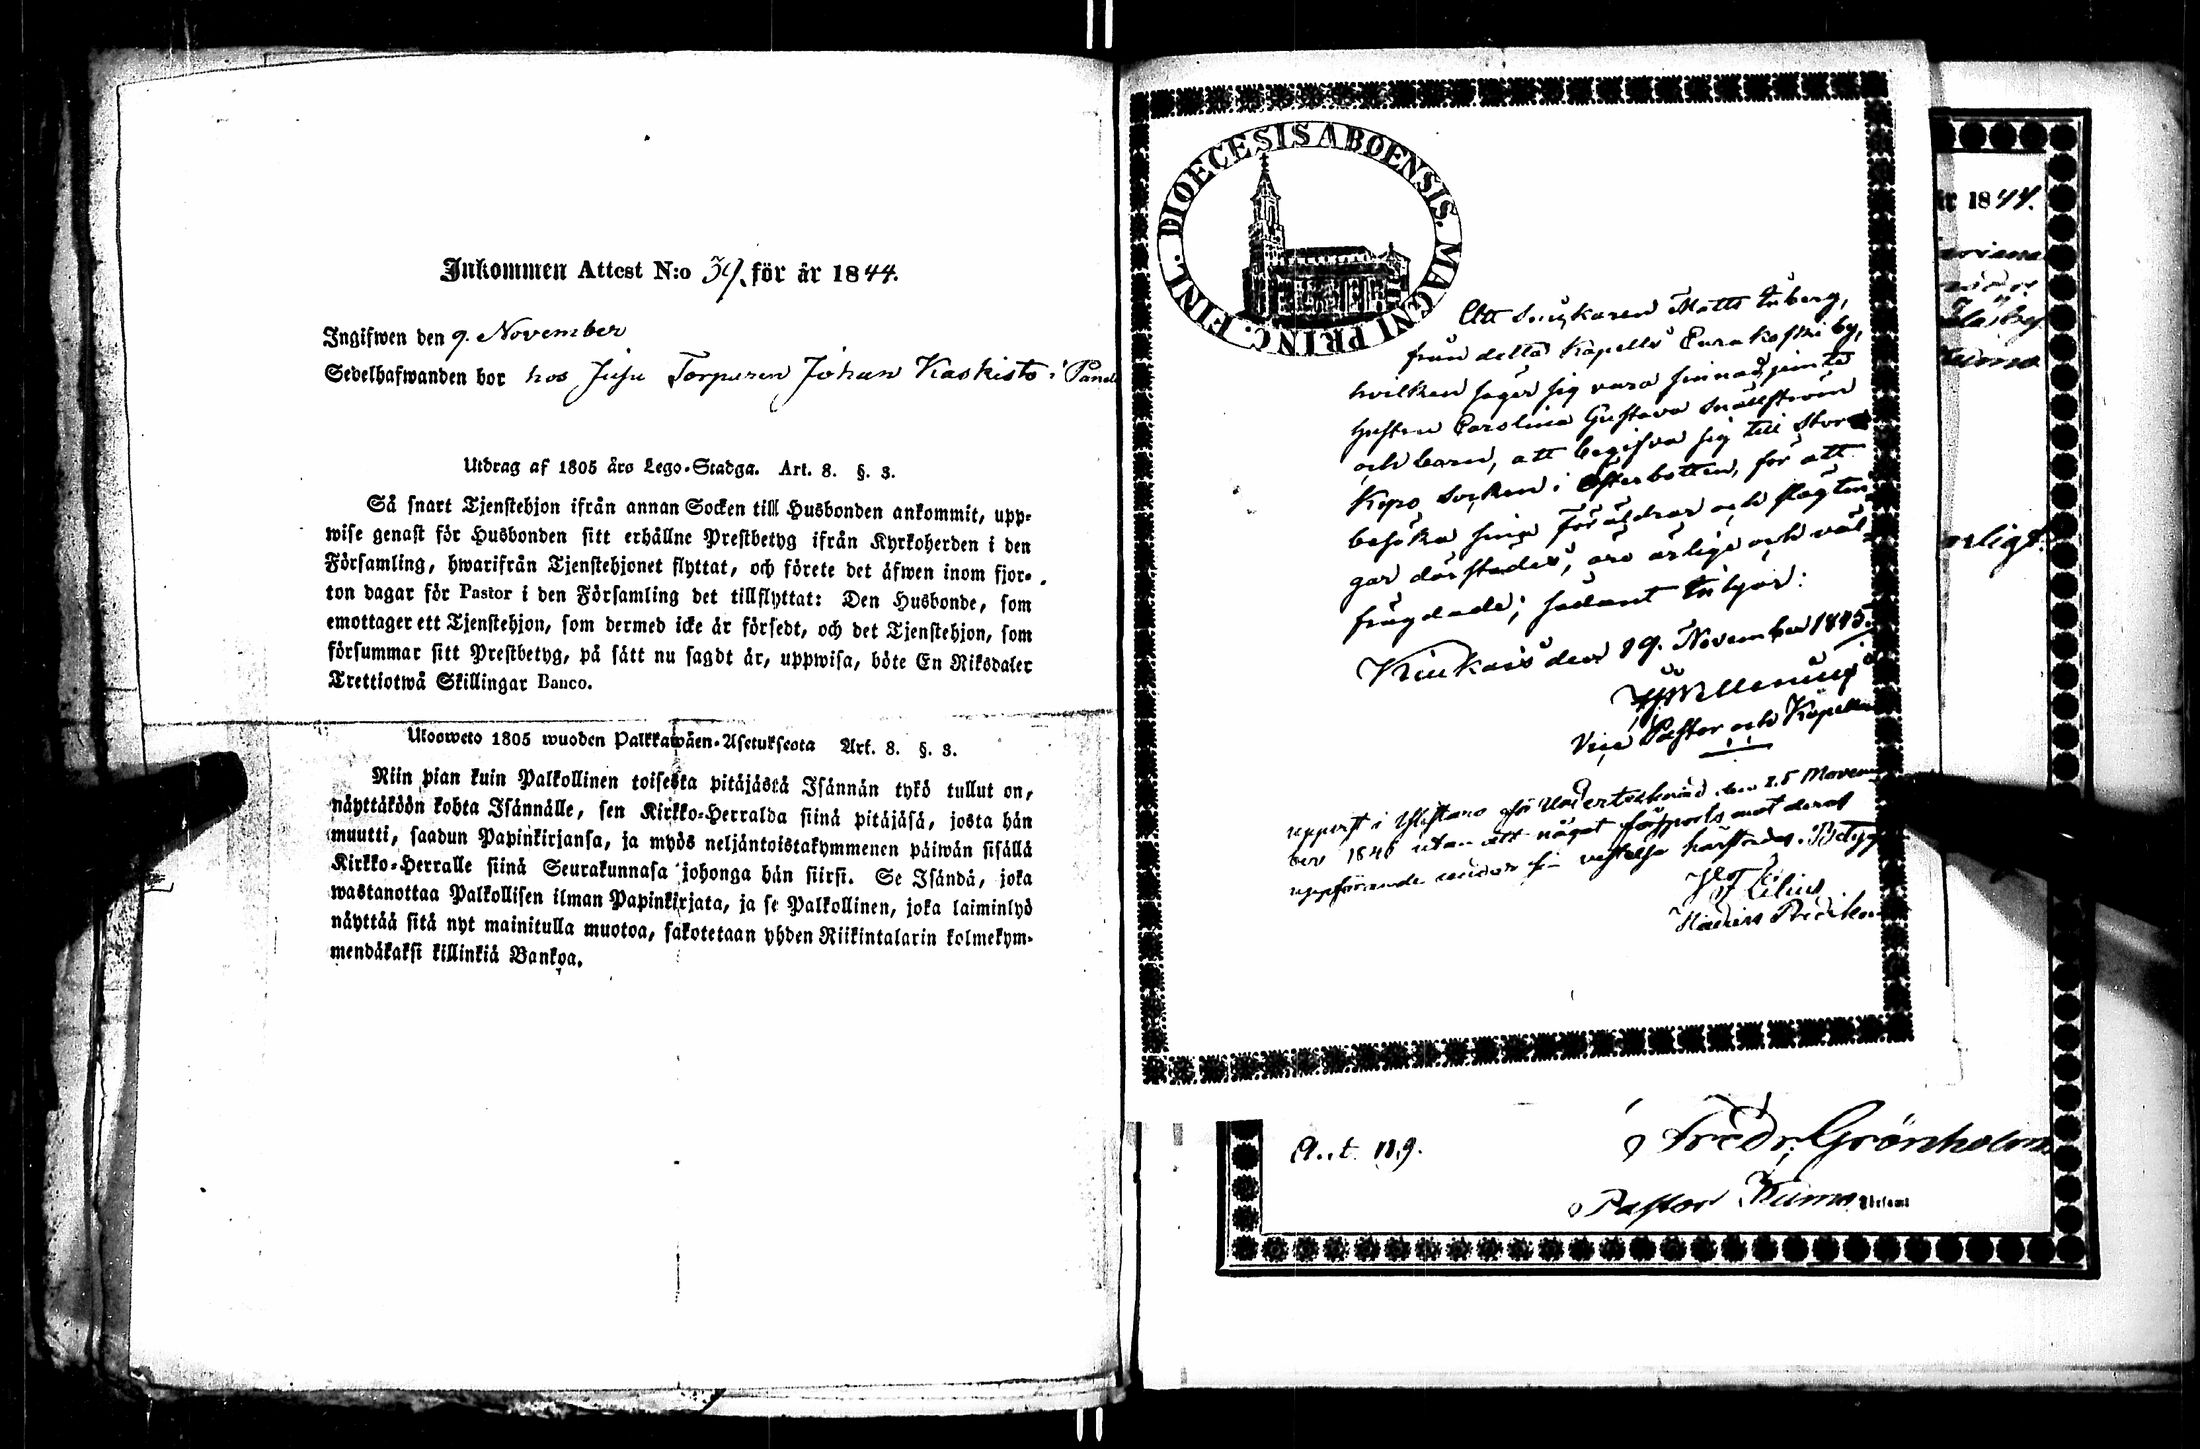 Inkommen Attest N:o 39. för år 1844.
Ingifwen den 9. November
Sedelhafwanden bor hos Torparen Johan Kaskisto i
Utdrag af 1805 års Lego-Stadga. Art. 8. §. 3.
Så snart Tjenstehjon ifrån annan Socken till Husbonden ankommit, upp-
wise genast för Husbonden sitt erhållne Prestbetyg ifrån Kyrkoherden i den
Församling, hwarifrån Tjenstehjonet flyttat, och förete det äfwen inom fjor-
ton dagar för Pastor i den Församling det tillflyttat: Den Husbonde, som
emottager ett Tjenstehjon, som dermed icke är försedt, och det Tjenstehjon, som
försummar sitt Prestbetyg, på sätt nu sagdt är, uppwisa, böte En Riksdaler
Trettiotwå Skillingar Banco.
Uloosweto 1805 wuoden Palkkawäen-Asetuksesta Art. 8. §. 3.
Niin pian kuin Palkollinen toisesta pitäjästä Isännän tykö tullut on,
näyttäköön kohta Isännälle, sen Kirkko-Herralda siinä pitäjäsä, josta hän
muutti, saadun Papinkirjansa, ja myös neljäntoistakymmenen päiwän sisällä
Kirkko-Herralle siinä Seurakunnasa johonga hän siirsi. Se Isändä, joka
wastanottaa Palkollisen ilman Papinkirjata, ja se Palkollinen, joka laiminlyö
näyttää sitä nyt mainitulla muotoa, sakotetaan yhden Riikintalarin kolmekym-
mendäkaksi killinkiä Bankoa.
DIOECESIS ABOENSIS. MAGNI PRINC. FINL.
Att Snickaren Matts Tuberg,
från detta Kapells Eurakoski by,
hvilken säger sig vara sinnad jemte
hustru Carolina Gustava Snällström
och barn, att begifva sig till Stor
Kyro Socken i Österbotten, för att
besöka sina Föräldrar och slägtin-
gar därstädes, äro ärlige och väl-
frägdade; sådant intygar:
Kiukais den 19. November 1845.
Vice Pastor och Kapellan
uppvist i för undertecknad den 25 Novem-
ber 1845 utan att något försports mot deras
uppförande under sin vistelse härstädes. Betygar
Lilius
Predikant
år 1844.
Ant. 119.
Fredr. Grönholm
Pastor Kumo Församl